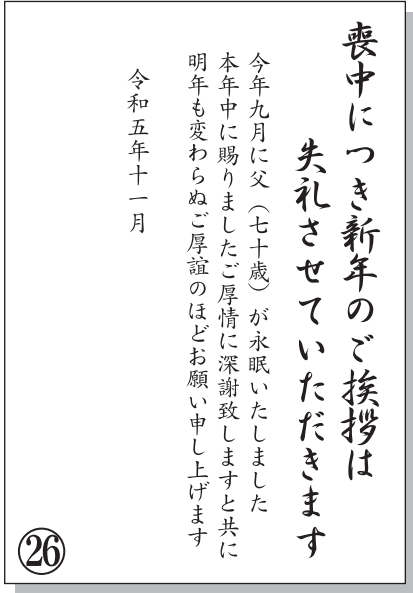 喪中につき新年のご挨拶は
失礼させていただきます
今年九月に父（七十歳）が永眠いたしました
本年中に賜りましたご厚情に深謝致しますと共に
明年も変わらぬご厚誼のほどお願い申し上げます
令和五年十一月
㉖